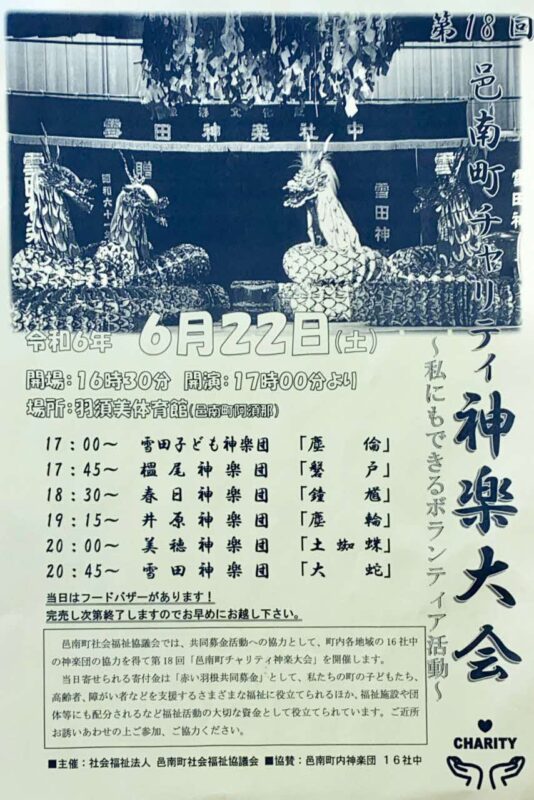 第18回
邑南町チャリティ神楽大会
~私にもできるボランティア活動~
雪田神楽社中
贈
昭和六十
雪田神
令和6年 6月22日(土)
開場:16時30分 開演:17時00分より
場所:羽須美体育館(邑南町阿須那)
17:00~ 雪田子ども神楽団 「塵倫」
17:45~ 榲尾神楽団 「磐戸」
18:30~ 春日神楽団 「鐘馗」
19:15~ 井原神楽団 「塵輪」
20:00~ 美穂神楽団 「土蜘蛛」
20:45~ 雪田神楽団 「大蛇」
当日はフードバザーがあります!
完売し次第終了しますのでお早めにお越し下さい。
邑南町社会福祉協議会では、共同募金活動への協力として、町内各地域の16社中
の神楽団の協力を得て第18回「邑南町チャリティ神楽大会」を開催します。
当日寄せられる寄付金は「赤い羽根共同募金」として、私たちの町の子どもたち、
高齢者、障がい者などを支援するさまざまな福祉に役立てられるほか、福祉施設や団
体等にも配分されるなど福祉活動の大切な資金として役立てられています。ご近所
お誘いあわせの上ご参加、ご協力ください。
■主催:社会福祉法人 邑南町社会福祉協議会 ■協賛:邑南町内神楽団 16社中
CHARITY